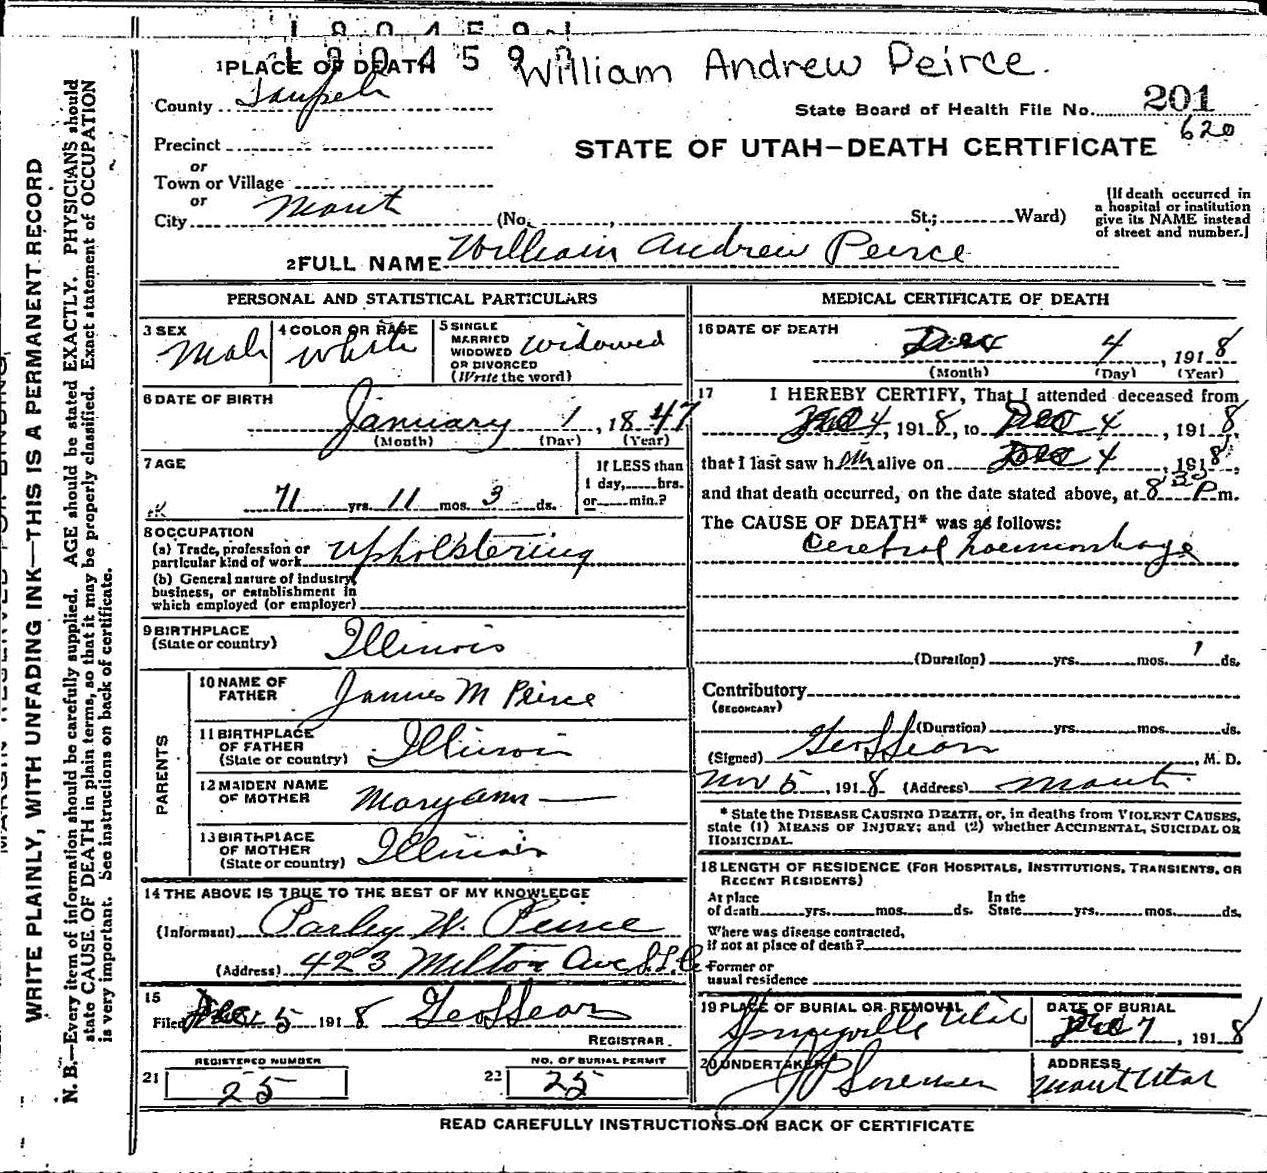 180459
William Andrew Peirce.
1 PLACE OF DEATH
County Sanpete
State Board of Health File No. 201
620
Precinct
STATE OF UTAH—DEATH CERTIFICATE
or
Town or Village
or
City Manti (No. , St.; Ward)
[If death occurred in
a hospital or institution
give its NAME instead
of street and number.]
2 FULL NAME William Andrew Peirce
PERSONAL AND STATISTICAL PARTICULARS
3 SEX
Male
4 COLOR OR RACE
White
5 SINGLE
MARRIED
WIDOWED
OR DIVORCED
(Write the word)
Widowed
6 DATE OF BIRTH
January 1, 1847
(Month) (Day) (Year)
7 AGE
71 yrs. 11 mos. 3 ds.
If LESS than
1 day, hrs.
or min.?
8 OCCUPATION
(a) Trade, profession or
particular kind of work Upholstering
(b) General nature of industry,
business, or establishment in
which employed (or employer)
9 BIRTHPLACE
(State or country) Illinois
PARENTS
10 NAME OF
FATHER James M Peirce
11 BIRTHPLACE
OF FATHER
(State or country) Illinois
12 MAIDEN NAME
OF MOTHER Mary Ann —
13 BIRTHPLACE
OF MOTHER
(State or country) Illinois
14 THE ABOVE IS TRUE TO THE BEST OF MY KNOWLEDGE
(Informant) Parley W. Peirce
(Address) 423 Milton Ave S.L.C
15
Filed Dec 5 1918 Geo L Sears
REGISTRAR.
REGISTERED NUMBER
21 25
NO. OF BURIAL PERMIT
22 25
MEDICAL CERTIFICATE OF DEATH
16 DATE OF DEATH
Dec 4, 1918
(Month) (Day) (Year)
17 I HEREBY CERTIFY, That I attended deceased from
Dec 4, 1918, to Dec 4, 1918,
that I last saw him alive on Dec 4, 1918,
and that death occurred, on the date stated above, at 8 30 P m.
The CAUSE OF DEATH* was as follows:
Cerebral haemorrhage
(Duration) yrs. mos. 1 ds.
Contributory
(SECONDARY)
(Duration) yrs. mos. ds.
(Signed) Geo L Sears, M. D.
Nov 5, 1918 (Address) Manti
* State the DISEASE CAUSING DEATH, or, in deaths from VIOLENT CAUSES,
state (1) MEANS OF INJURY; and (2) whether ACCIDENTAL, SUICIDAL OR
HOMICIDAL.
18 LENGTH OF RESIDENCE (FOR HOSPITALS, INSTITUTIONS, TRANSIENTS, OR
RECENT RESIDENTS)
At place
of death yrs. mos. ds.
In the
State yrs. mos. ds.
Where was disease contracted,
if not at place of death?
Former or
usual residence
19 PLACE OF BURIAL OR REMOVAL
Springville Utah
DATE OF BURIAL
Dec 7, 1918
20 UNDERTAKER
J P Sorensen
ADDRESS
Manti Utah
READ CAREFULLY INSTRUCTIONS ON BACK OF CERTIFICATE
WRITE PLAINLY, WITH UNFADING INK—THIS IS A PERMANENT RECORD
N. B.—Every item of information should be carefully supplied. AGE should be stated EXACTLY. PHYSICIANS should
state CAUSE OF DEATH in plain terms, so that it may be properly classified. Exact statement of OCCUPATION
is very important. See instructions on back of certificate.